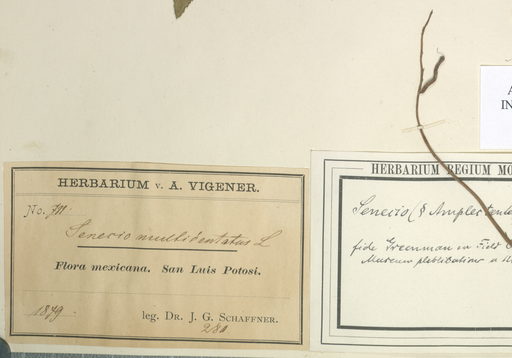 HERBARIUM v. A. VIGENER.
No.
Senecio multidentatus L
Flora mexicana. San Luis Potosi.
1879.
leg. DR. J. G. SCHAFFNER.
280
HERBARIUM REGIUM MO
Senecio (§ Amplectentes
fide Greenman in Field
Museum publications
A
IN